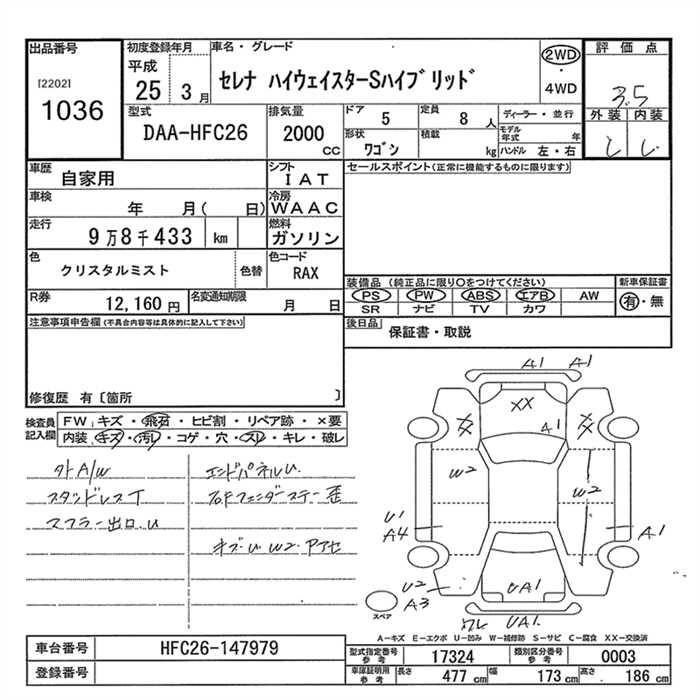 出品番号
[2202]
1036
初度登録年月
平成
25 3月
車名・グレード
セレナ ハイウェイスターSハイブリッド
2WD
・
4WD
評価点
3.5
外装 内装
型式
DAA-HFC26
排気量
2000
CC
ドア
5
定員
8 人
ディーラー・並行
形状
ワゴン
積載
kg
モデル年式 年
ハンドル 左・右
車歴
自家用
シフト
IAT
セールスポイント(正常に機能するものに限ります)
車検
年 月( 日)
冷房
WAAC
走行
9万8千433 km
燃料
ガソリン
色
クリスタルミスト
色替
色コード
RAX
装備品 (純正品に限り○をつけてください)
PS PW ABS エアB AW
SR ナビ TV カワ
新車保証書
有・無
R券
12,160 円
名変通知期限
月 日
後日品
保証書・取説
注意事項申告欄(不具合内容等は具体的に記入して下さい)
修復歴 有〔箇所 〕
検査員記入欄
FW キズ・飛石・ヒビ割・リペア跡・×要
内装 キズ・汚レ・コゲ・穴・スレ・キレ・破レ
外A/W
エンドパネルU
スタッドレスT
マフラー出口U
キズU W2 アアセ
A1 A1
XX
A1
W2
W2
U1
A4
A1
U2
A3
UA1
UA1
スペア
A-キズ E-エクボ U-凹み W-補修跡 S-サビ C-腐食 XX-交換済
車台番号
HFC26-147979
登録番号
型式指定番号
参考
17324
類別区分番号
参考
0003
車庫証明用
参考
長さ 477 cm
幅 173 cm
高さ 186 cm